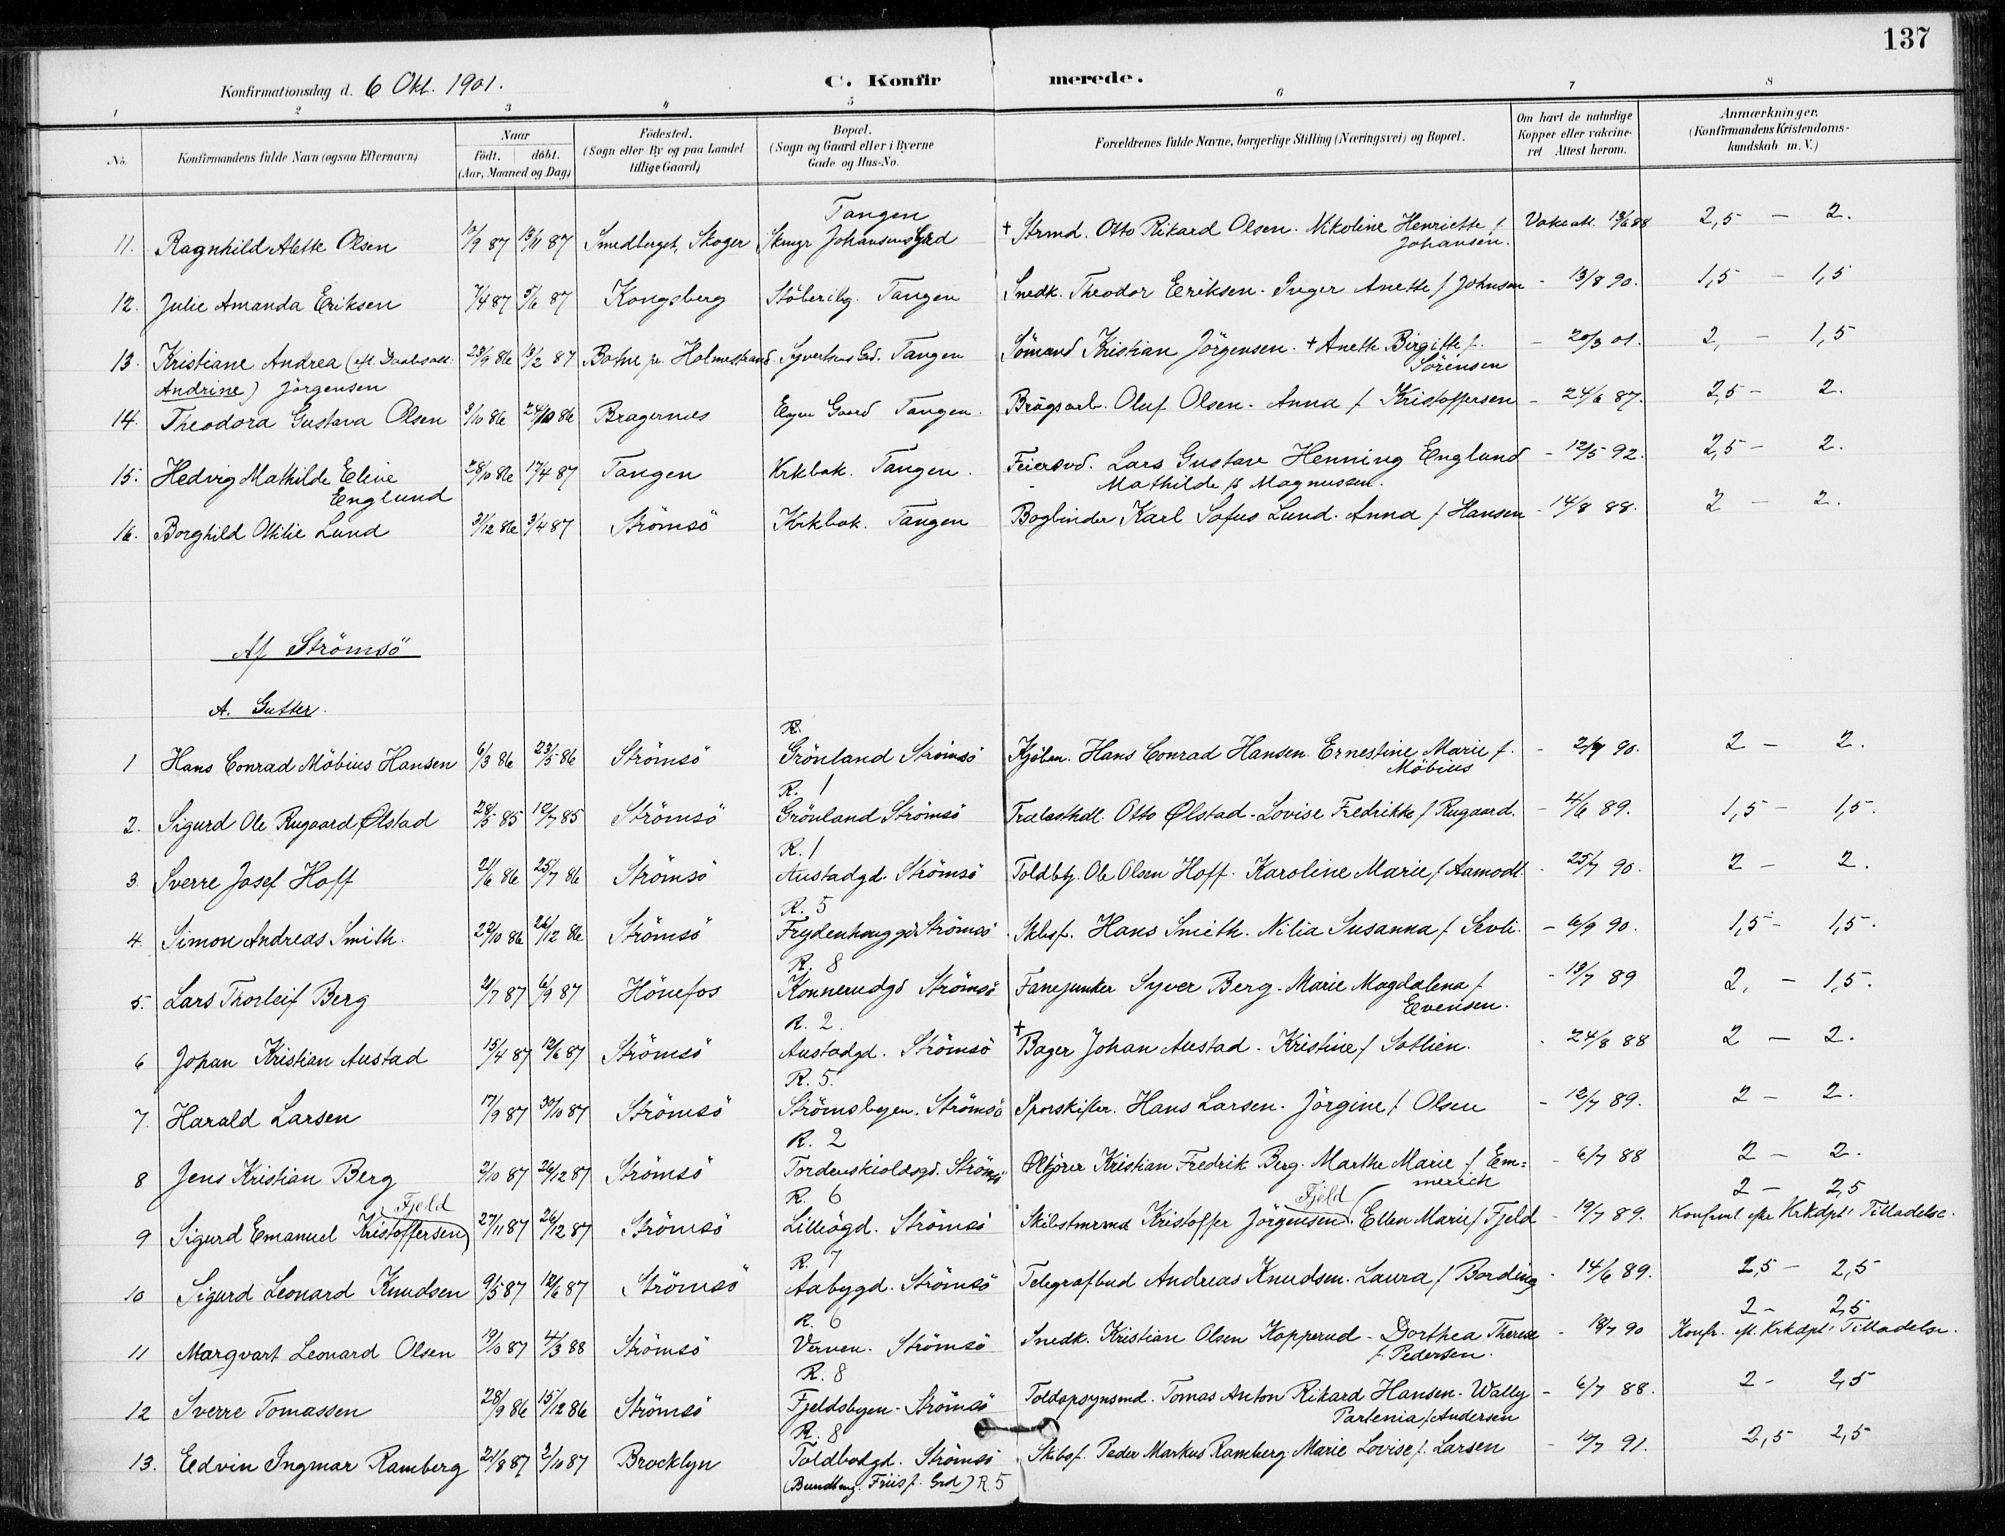 137
Konfirmationsdag d. 6 Okt. 1901.
C. Konfirmerede.
1 2 3 4 5 6 7 8
No.
Konfirmandens fulde Navn (ogsaa Efternavn)
Naar
födt. döbt.
(Aar, Maaned og Dag)
Födested.
(Sogn eller By og paa Landet
tillige Gaard)
Bopæl.
(Sogn og Gaard eller i Byerne
Gade og Hus-No.
Forældrenes fulde Navne, borgerlige Stilling (Næringsvei) og Bopæl.
Om havt de naturlige
Kopper eller vakcine-
ret Attest herom.
Anmærkninger.
(Konfirmandens Kristendoms-
kundskab m. V.)
Tangen
11. Ragnhild Alette Olsen 10/9 87 13/11 87 Smedberget, Skoger Skmgr Johansens Grd † Strmd. Otto Rikard Olsen. Nikoline Henriette f. Vakc att. 13/6 88 2,5 — 2.
Johansen.
12. Julie Amanda Eriksen 7/4 87 5/6 87 Kongsberg Stöberibg. Tangen Snedk. Theodor Eriksen. Inger Anette f. Johnsen - 13/8 90. 1,5 — 1,5
13. Kristiane Andrea (efl. Daabsatt. 23/9 86 13/2 87 Botne pr. Holmestrand. Syvertsens Grd. Tangen Sömand Kristian Jörgensen. † Anette Birgitte f. - 20/3 01. 2, — 1,5
Andrine) Jörgensen Sörensen
14. Theodora Gustava Olsen 3/10 86 24/10 86 Bragernæs Egen Gaard Tangen. Brugsarb. Oluf Olsen. Anna f. Kristoffersen - 24/6 87. 2,5 — 2.
15. Hedvig Mathilde Eline 28/10 86 17/4 87 Tangen Krkbak. Tangen. Feiersvd. Lars Gustav Henning Englund - 12/5 92. 2,5 — 2.
Englund Mathilde f. Magnussen.
16. Borghild Otilie Lund 31/12 86 3/4 87 Strömsö Krkbak. Tangen Bogbinder Karl Sofus Lund. Anna f. Hansen - 14/8 88. 2 — 2.
Af Strömsö
A. Gutter.
R.
1 Hans Conrad Möbius Hansen 6/3 86 23/5 86 Strömsö Grönland Strömsö Kjöbm. Hans Conrad Hansen. Ernestine Marie f. - 2/7 90. 2 — 2.
Möbius
R. 1
2. Sigurd Ole Rugaard Ølstad 28/5 85 12/7 85 Strömsö Grönland Strömsö Trælasthdl. Otto Ølstad - Lovise Fredrikke f. Rugaard. - 4/6 89. 1,5 — 1,5.
R. 1
3. Sverre Josef Hoff 21/6 86 25/7 86 Strömsö Austadgd. Strömsö Toldbtj. Ole Olsen Hoff. Karoline Marie f. Aamodt - 25/7 90. 2 — 2.
R. 5
4. Simon Andreas Smith. 22/10 86 26/12 86 Strömsö Frydenhauggd Strömsö Skbsf. Hans Smith. Nilia Susanna f. Sevli. - 6/9 90. 1,5 — 1,5.
R. 8
5. Lars Thorleif Berg 2/7 87 6/9 87 Hönefos Konnerudgd Strömsö Fanejunker Syver Berg. Marie Magdalena f. - 13/7 89 2, — 1,5.
Evensen.
R. 2.
6 Johan Kristian Austad 15/4 87 12/6 87 Strömsö Austadgd. Strömsö † Bager Johan Austad. Kristine f. Sotlien. - 24/8 88 2 — 2.
R. 5.
7. Harald Larsen 17/9 87 30/10 87 Strömsö Strömsbyen. Strömsö Sporskifter. Hans Larsen. Jörgine f. Olsen - 12/7 89. 2 — 2.
R. 2
8 Jens Kristian Berg 2/10 87 26/12 87 Strömsö Tordenskioldsgd. Strömsö Ølkjörer Kristian Fredrik Berg. Marthe Marie f. Em= - 6/7 88 2 — 2.
merich
Fjeld R. 6 Fjeld 2 — 2,5
9 Sigurd Emanuel Kristoffersen) 27/11 87 26/12 87 Strömsö Lilleögd. Strömsö Skibstmrmd Kristoffer Jörgensen. Ellen Marie f. Fjeld - 19/7 89. Konfirml. efter Krkdpt's Tilladelse.
R. 7
10 Sigurd Leonard Knudsen 9/5 87 12/6 87 Strömsö Aabygd. Strömsö Telegrafbud Andreas Knudsen. Laura f. Bording - 14/6 89. 2,5 — 2,5
R. 6 2 - 2,5
11 Marqvart Leonard Olsen 19/10 87 4/3 88 Strömsö Verven. Strömsö Snedk. Kristian Olsen Kopperud - Dorthea Therese - 18/7 90 Konfr. eft. Krkdpt's Tilladelse.
f. Pedersen.
R. 8
12 Sverre Tomassen 28/9 86 15/12 86 Strömsö Fjeldsbyen - Strömsö Toldopsynsmd. Tomas Anton Rikard Hansen. Wally - 6/7 88. 2 - 2,5
Partenia f. Andersen
R. 8
13. Edvin Ingmar Ramberg 21/8 87 2/10 87 Brocklyn Toldbodgd. Strömsö Skibsf. Peder Markus Ramberg. Marie Lovise f. Larsen - 10/7 91. 2,5 2,5
(Bundtmg. Friis f. Grd) R 5